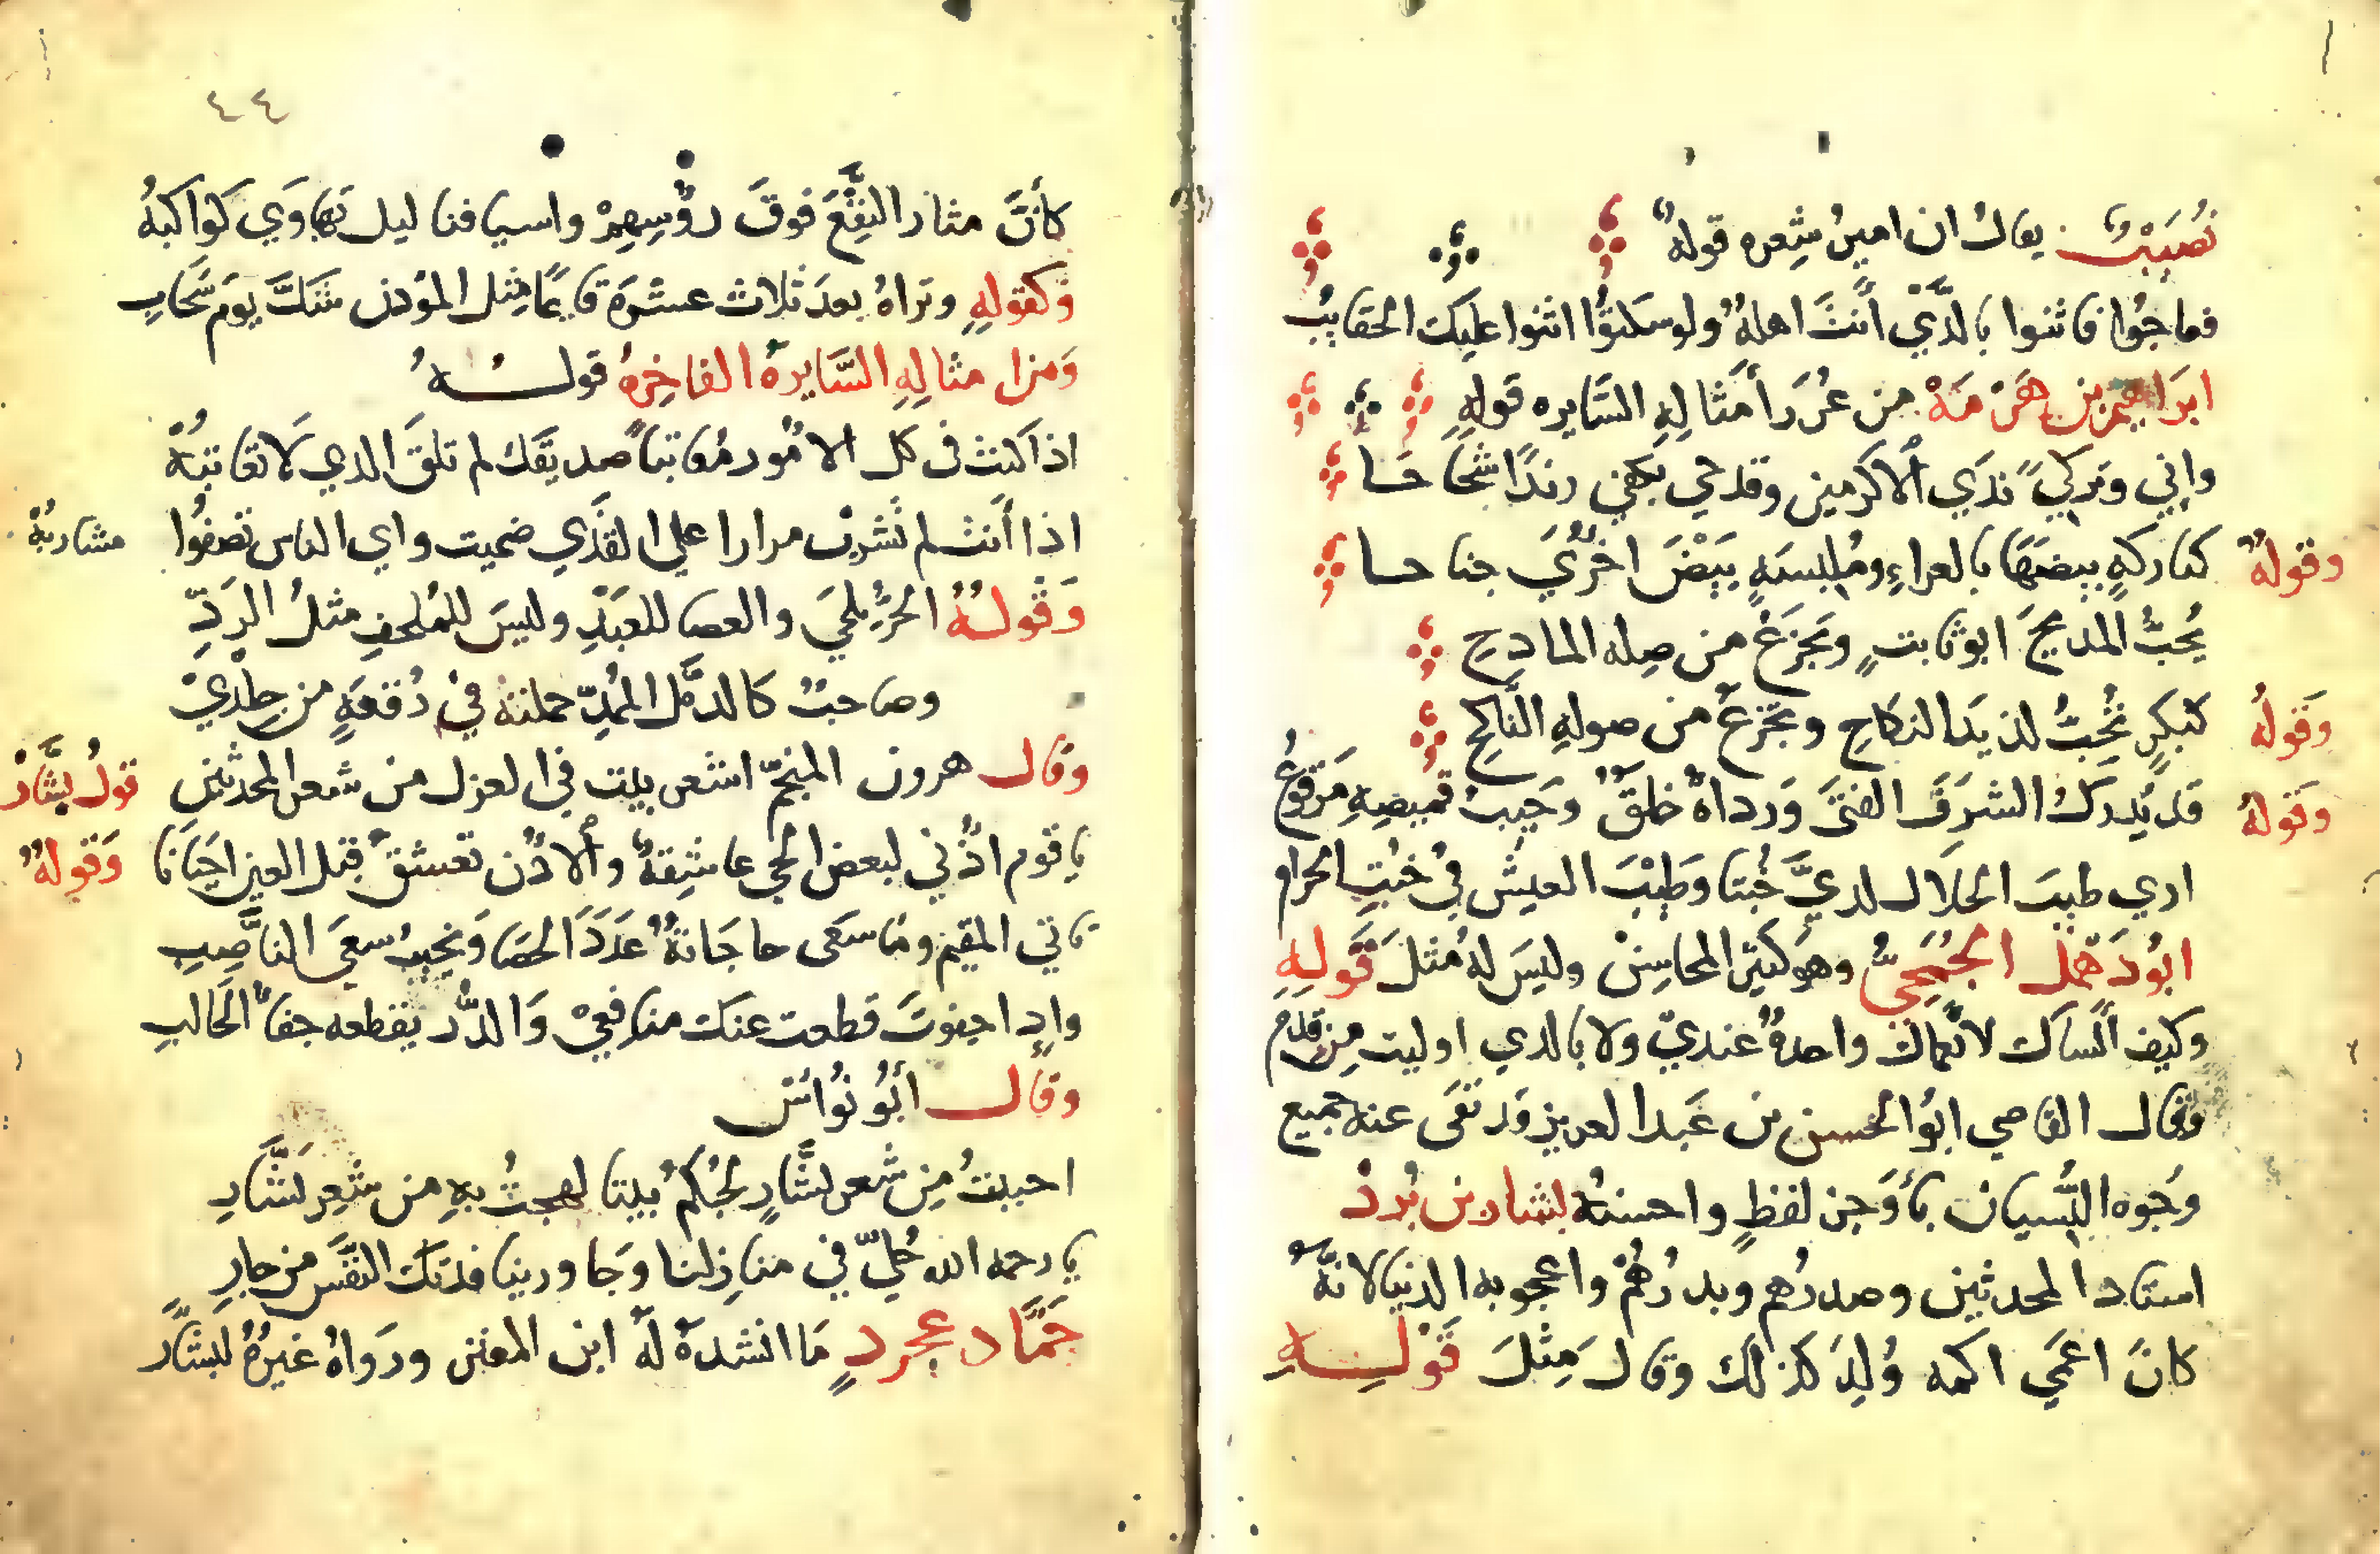 نُصَيْبٌ يقال ان امير شِعره قوله
فعاجُوا فاثنوا بالذَّي أنتَ اهلهُ ولو سكتوُّا اثنوا عليك الحقايبُ
ابرَاهيم بن هَرْمَهْ من غُرَر أمثالِهِ السَّايره قولهِ
واني وتركي ندَي ألاكرمين وقدحي بكفي زندًا شحَاحا
وقولهُ كتاركهٍ بيضهَا بالعراءِ ومُلبسَهٍ بَيْضَ اخرُيَ جناحا
يُحبُّ المديحَ ابوثابتٍ ويَجزَعُ من صِله المادحِ
وَقولُه كبكرٍ تُحِبُّ لذيذَ النكاحِ وتجزعُ من صولهِ النَّاكحِ
وَقولهُ قد يُدركُ الشرَفَ الفتَى وَرداهُ خلقٌ وَجَيبُ قميصِهِ مَرقوعُ
اري طيبَ الحلَال لديَّ خُبثا وَطِيْبَ العيش في خُبثِ الحرامِ
ابُودَهْبَل الجُمَحيُّ وهوَ كثير المحاسِنْ وليسَ لهُ مُثلَ قَولِهِ
وكيف انساك لانعماك واحدهُ عنديّ ولا بالذي اوليت مِن قدمِ
وقال القاضي ابوُالحسن بن عَبدالعزيز وَقد نفَى عنه جميع
وجُوه النِّسيان بأوَجز لفظٍ واحسنهُ بشار بن بُردْ
استاد المحدثين وصدرُهم وبدرُهُمْ واعجوبه الدنيا لانَّهُ
كانَ اعمَي اكمه وُلِدَ كذلك وقالَ مِثْلَ قَولهِ
٤٤
كأنَّ مثار النقْعَ فوقَ رؤُسِهِمْ واسيافنا ليل تهاوَي كوَاكبُه
وَكقولهِ وتراهُ بعدَ ثلاث عشرَة قايمًا مِثل المؤذن شكَّ يومَ سَحَابِ
وَمن امثالِهِ السَّايرهُ الفاخِرهُ قولـــهُ
اذا كنت في كل الامُور مُعاتباً صديقَك لم تلقَ الذي لَا تعاتبُهْ
اذا أنت لم تشربْ مرارا علي القذَي ضميت واي الناس تصفوُا مشاربُهْ
وَقولهُ الحرُّ يلحَي والعصا للعبَدِ وليسَ للمُلحفِ مثلُ الردِّ
وصاحبٌ كالدمَّل المُمِدّ حملتهُ فيْ رُقعَهٍ من جِلْديْ
وقال هرون المنجّم اشعر بيت في الغزل من شعر المحدثين قولُ بشَّارْ
ياقوم اذُني لبعض الحي عاشِقةٌ وألاذُن تعشقُ قبل العين احيَانا وَقولهُ
ياتي المقيم ومَا سعَى حاجَاتهُ عَدَدَ الحصَا وَيخيبُ سعيَ الناصِبِ
واذا جفوتَ قطعت عنك منافعيْ وَالدَّر يقطعه جفاُ الحَالبِ
وقال أبُو نُواسْ
احببتُ مِن شعر بشَّارٍ لحُبكمُ بيتا لهجتُ بهِ من شعِر بَشَّارِ
يارحمه الله حُلِّي في منازلنا وَجاورينا فدتكَ النفَّس من جارِ
حمَّاد عجردٍ مَا انشدهُ لهُ ابن المعتز ورَواهُ غيرهُ لبشارَّ